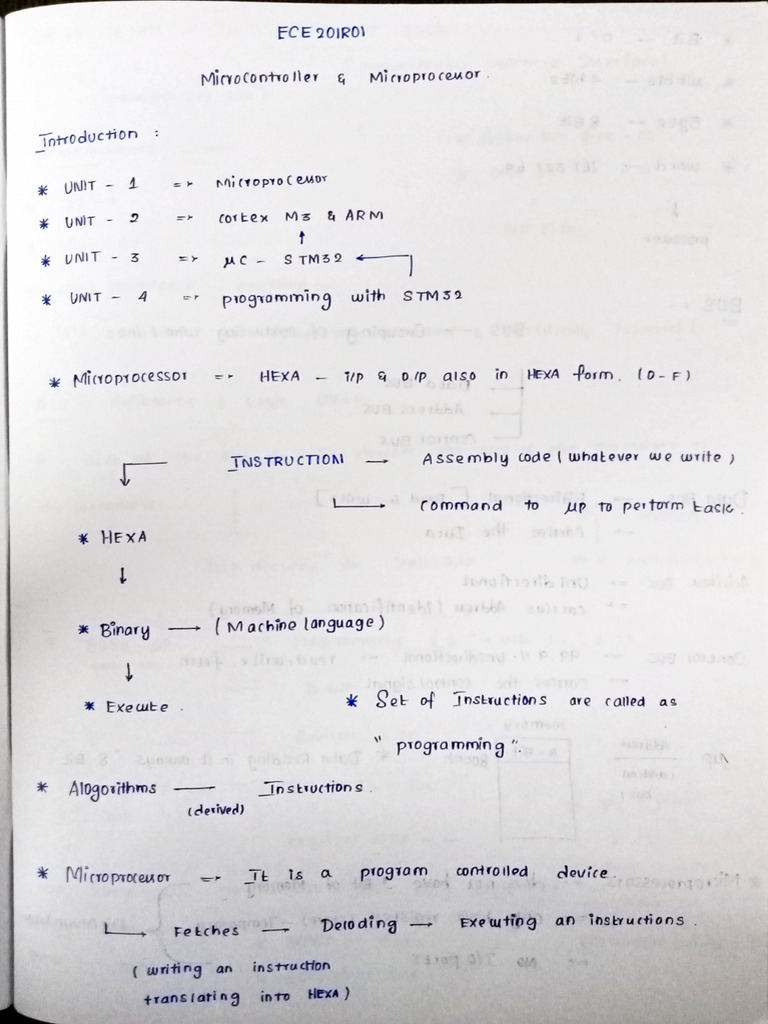 ECE 201R01
Microcontroller & Microprocessor.
Introduction :
* UNIT - 1 => Microprocessor
* UNIT - 2 => cortex M3 & ARM
↑
* UNIT - 3 => μC - STM32 ←
* UNIT - 4 => programming with STM32
* Microprocessor => HEXA - i/p & o/p also in HEXA form. (0-F)
INSTRUCTION → Assembly code (whatever we write)
↓ → command to μp to perform task.
* HEXA
↓
* Binary → (Machine language)
↓
* Execute . * Set of Instructions are called as
" programming ".
* Alogorithms → Instructions.
(derived)
* Microprocessor => It is a program controlled device.
→ Fetches → Decoding → Executing an instructions.
( writing an instruction
translating into HEXA )